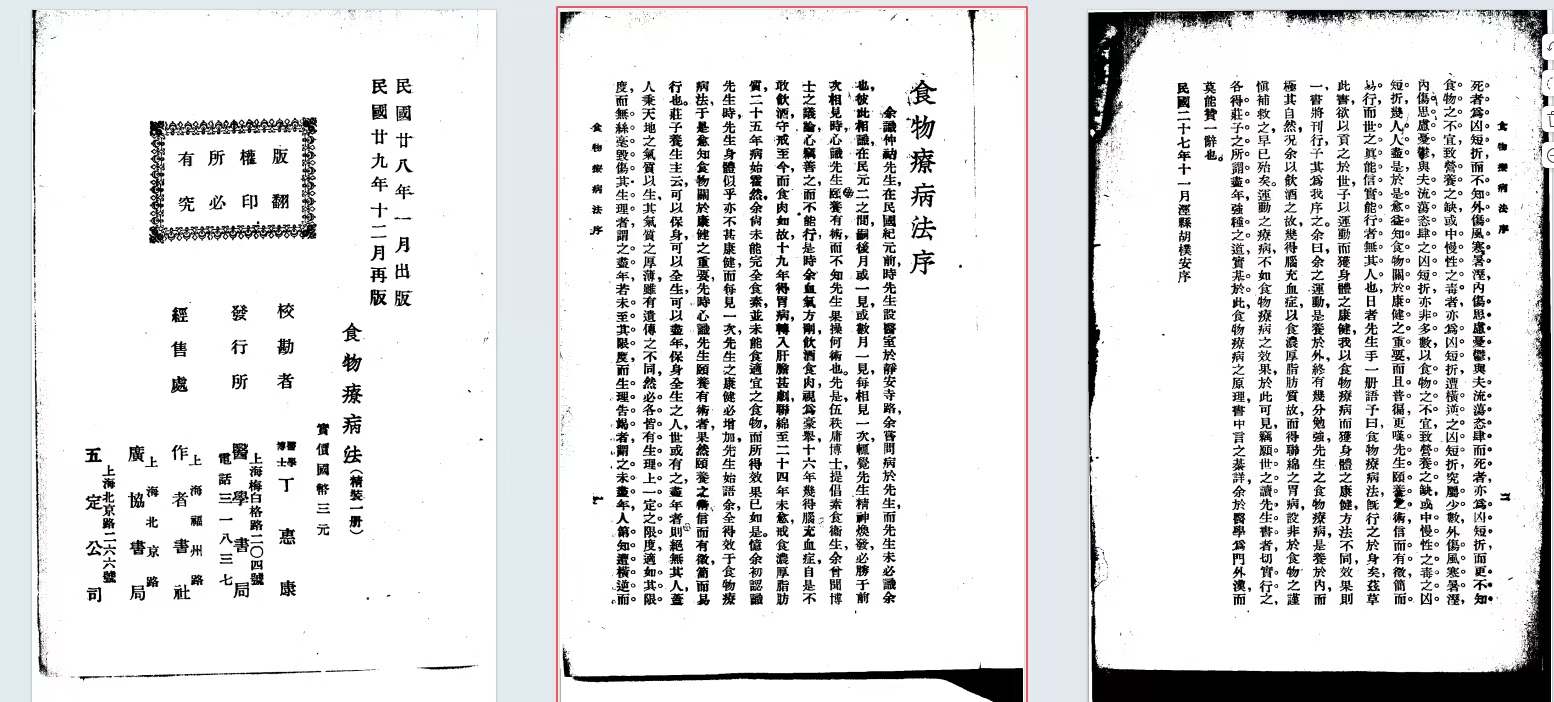 民國廿八年一月出版
民國廿九年十二月再版
版權所有
翻印必究
食物療病法(精裝一册)
實價國幣三元
校勘者
醫學博士丁惠康
發行所
醫學書局
上海梅白格路二〇四號
電話三一八三七
經售處
作者書社
上海福州路
廣協書局
上海北京路
五定公司
上海北京路二六六號
食物療病法序
余識仲祜先生在民國紀元前時先生設醫室於靜安寺路余嘗問病於先生而先生未必識余
也彼此相識在民元二之間嗣後月或一見或數月一見每相見一次輒覺先生精神煥發必勝于前
次相見時心識先生頤養有術而不知先生果操何術也先是伍秩庸博士提倡素食衞生余曾聞博
士之議論心竊善之而不能行是時余血氣方剛飲酒食肉視爲豪舉十六年幾得腦充血症自是不
敢飲酒守戒至今而食肉如故十九年得胃病轉入肝膽甚劇聯綿至二十四年未愈戒食濃厚脂肪
質二十五年病始霍然余尙未能完全食素並未能食適宜之食物而所得效果已如是憶余初認識
先生時先生身體似乎亦不甚康健而每見一次先生之康健必增加先生始語余全得效于食物療
病法于是愈知食物關於康健之重要先時心識先生頤養有術者果然頤養之術信而有徵簡而易
行也莊子養生主云可以保身可以全生可以盡年保身全生之人世或有之盡年者則絕無其人蓋
人秉天地之氣質以生其氣質之厚薄雖有遺傳之不同然必各皆有生理上一定之限度適如其限
度而無絲毫毀傷其生理者謂之盡年若未至其限度而生理告竭者謂之未盡年人第知遭橫逆而
食物療病法序
一
食物療病法序
二
死者爲凶短折而不知外傷風寒暑溼內傷思慮憂鬱與夫流蕩恣肆而死者亦爲凶短折而更不知
食物之不宜致營養之缺或中慢性之毒者亦爲凶短折遭橫逆之凶短折究屬少數外傷風寒暑溼
內傷思慮憂鬱與夫流蕩恣肆之凶短折亦非多數以食物之不宜致營養之缺或中慢性之毒之凶
短折幾人人盡是於是愈益知食物關於康健之重要而且普徧更嘆先生頤養之術信而有徵簡而
易行而世之眞能信實能行者無其人也日者先生手一册語予曰食物療病法旣行之於身矣茲草
此書欲以貢之於世子以運動而獲身體之康健我以食物療病而獲身體之康健方法不同效果則
一書將刊行子其爲我序之余曰余之運動是養於外終有幾分勉強先生之食物療病是養於內而
極其自然況余以飲酒之故幾得腦充血症以食濃厚脂肪質故而得聯綿之胃病設非於食物之謹
愼補救之早已殆矣運動之療病不如食物療病之效果於此可見竊願世之讀先生書者切實行之
各得莊子之所謂盡年強種之道實基於此食物療病之原理書中言之綦詳余於醫學爲門外漢而
莫能贊一辭也
民國二十七年十一月涇縣胡樸安序